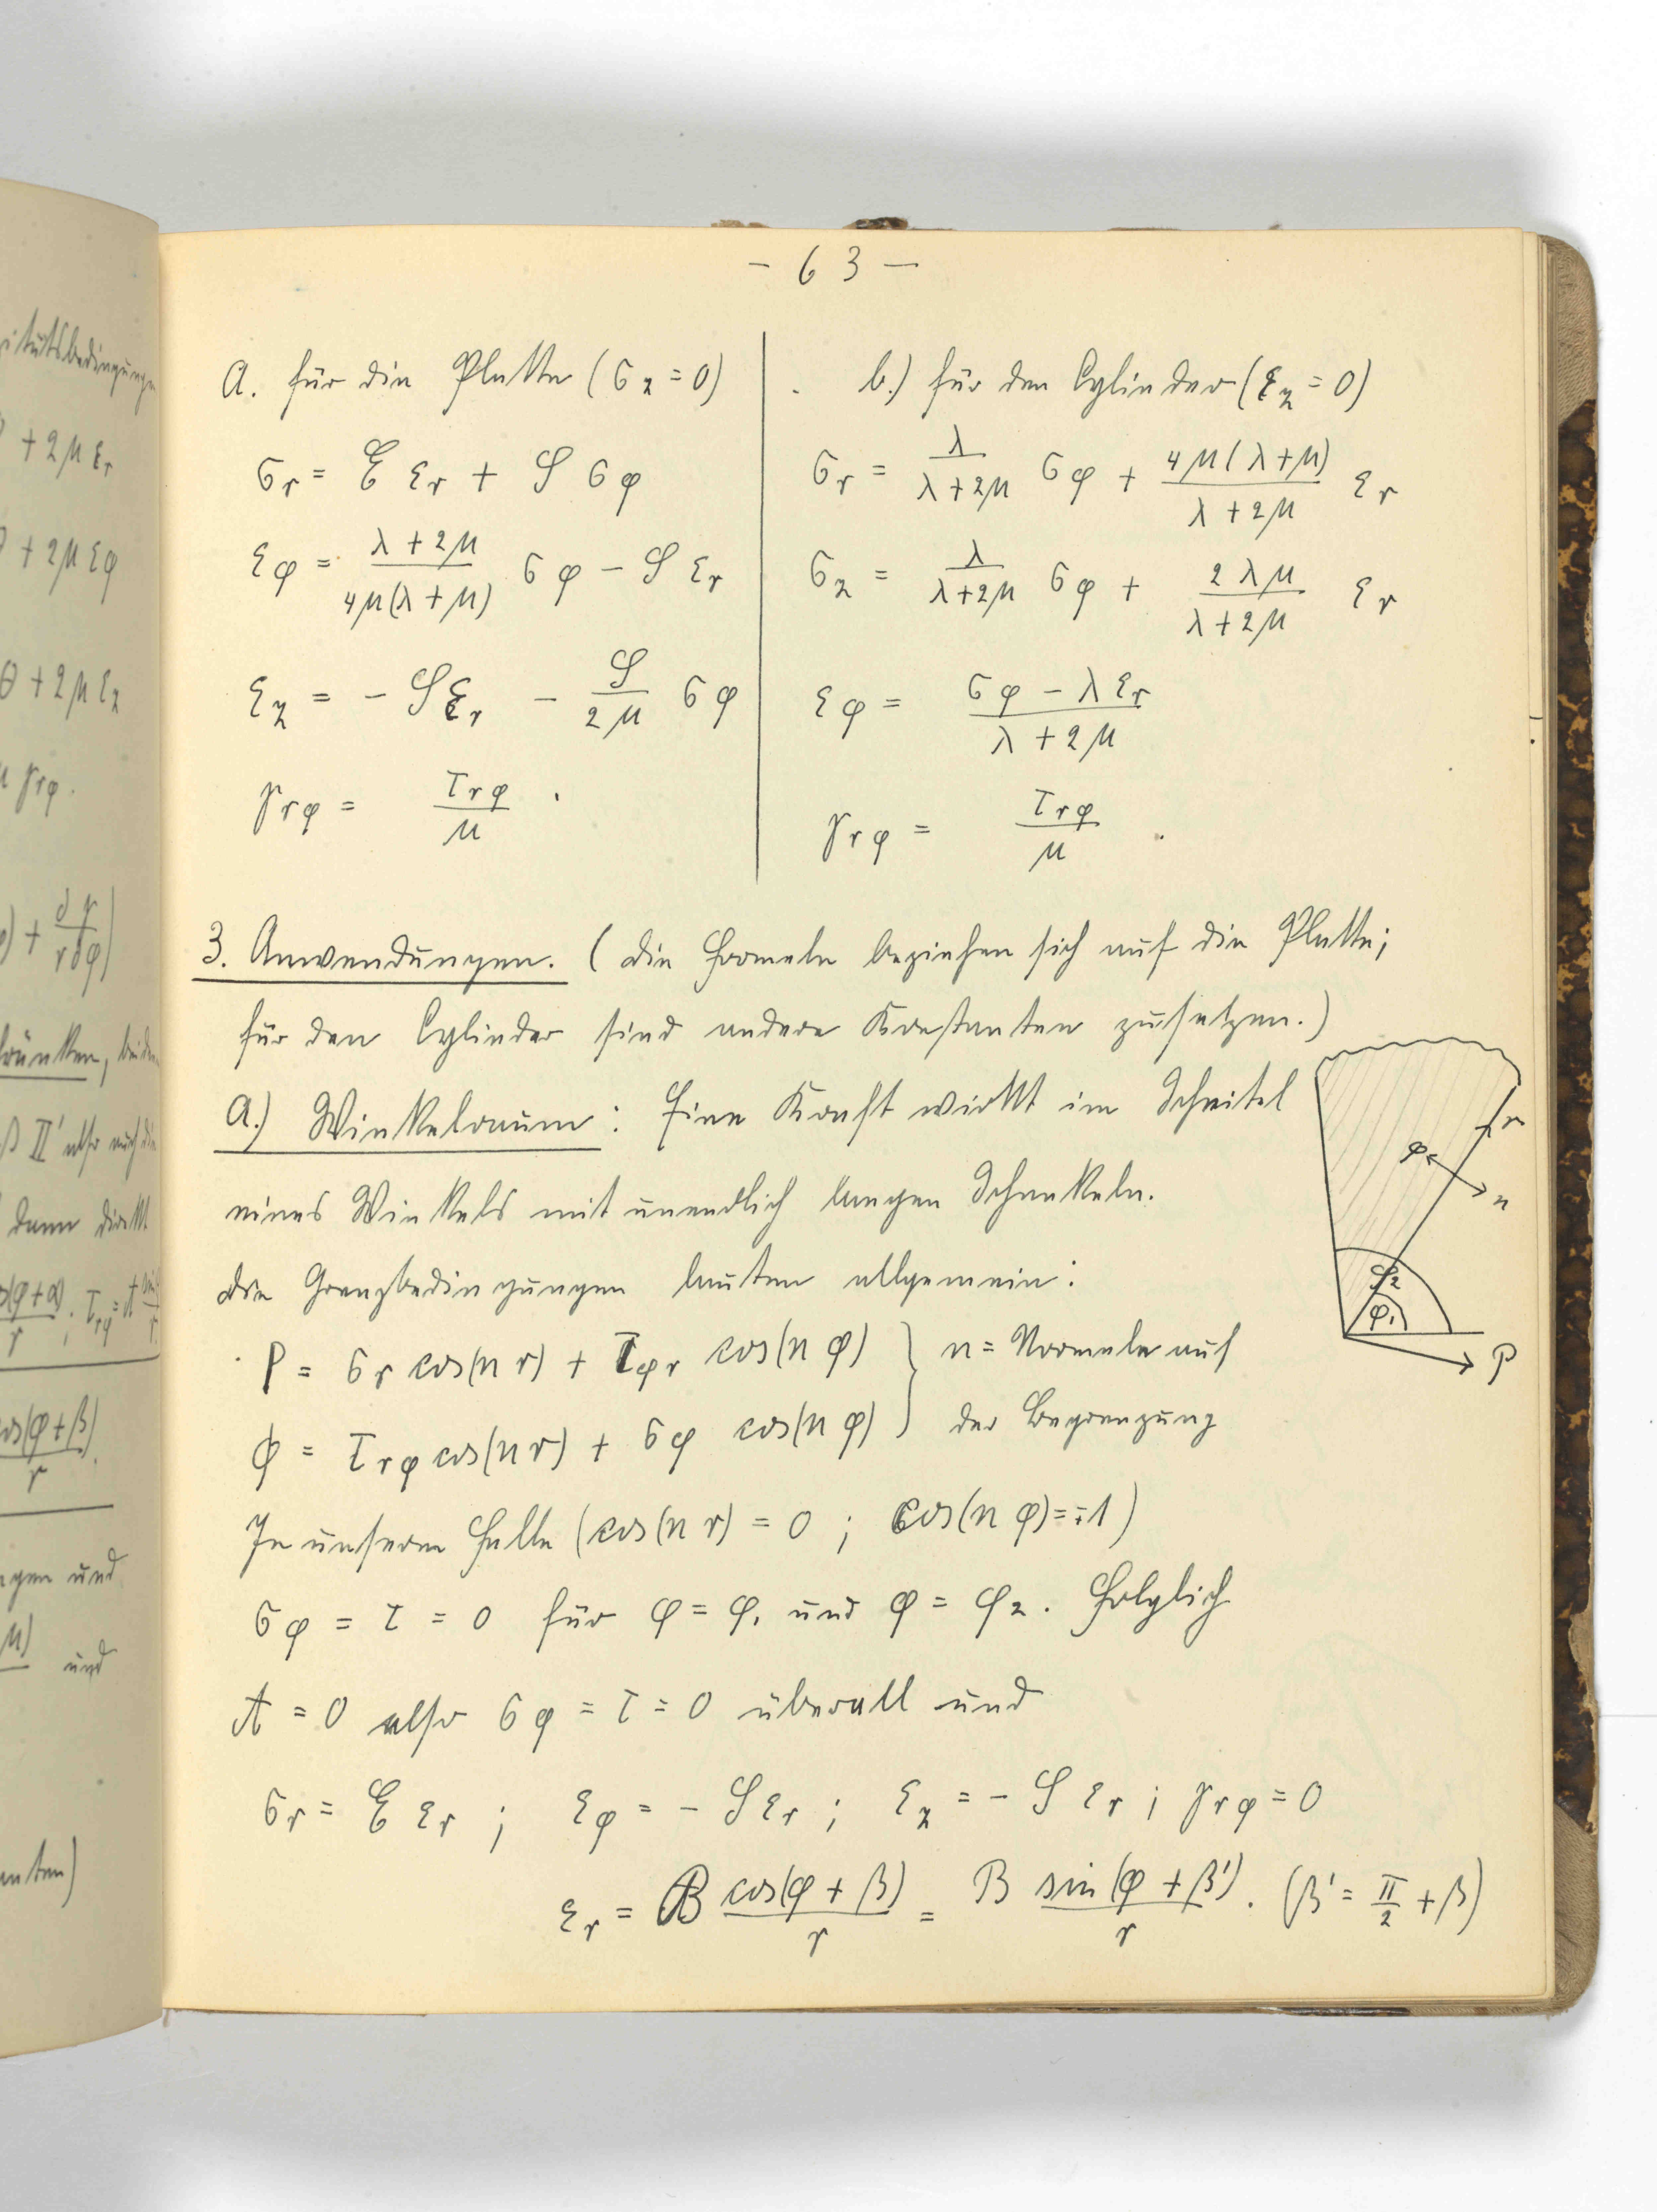 itätsbedingungen
+ 2μ εr
+ 2μ εφ
θ + 2μ εz
μ γrφ.
+ ∂γ/r∂φ)
und
und
cos(φ+β)/r
- 63 -
a. für die Platte (σz = 0)
σr = E εr + S σφ
εφ = (λ + 2μ)/(4μ(λ + μ)) σφ - S εr
εz = - S εr - S/2μ σφ
γrφ = τrφ/μ .
b.) für den Cylinder (εz = 0)
σr = λ/(λ+2μ) σφ + 4μ(λ+μ)/(λ+2μ) εr
σz = λ/(λ+2μ) σφ + 2λμ/(λ+2μ) εr
εφ = (σφ - λ εr)/(λ + 2μ)
γrφ = τrφ/μ .
3. Anwendungen. (die Formeln beziehen sich auf die Platte;
für den Cylinder sind andere Konstanten zu setzen.)
a.) Winkelraum: Eine Kraft wirkt im Scheitel
eines Winkels mit unendlich langen Schenkeln.
die Grenzbedingungen lauten allgemein:
P = σr cos(n r) + τφr cos(n φ) } n = Normale auf
Φ = τrφ cos(n r) + σφ cos(n φ) } der Begrenzung
In unserem Falle (cos(n r) = 0 ; cos(n φ) = ∓1)
σφ = τ = 0 für φ = φ1 und φ = φ2. Folglich
A = 0 also σφ = τ = 0 überall und
σr = E εr ; εφ = - S εr ; εz = - S εr ; γrφ = 0
εr = B cos(φ + β)/r = B sin(φ + β')/r . (β' = π/2 + β)
r
φ
n
φ2
φ1
P